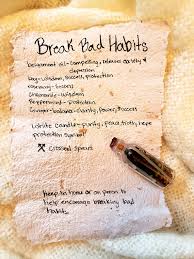 Break Bad Habits
Bergamont oil- compelling, relieves anxiety &
depression
Bay- wisdom, success, protection
rosemary- focus
Chamomile- wisdom
Peppermint- protection
Ginger- balance- clarity, power, success
White candle- purity, peace, truth, hope
protection
Crossed Spears
Keep in home or on person to
help encourage breaking bad
habits